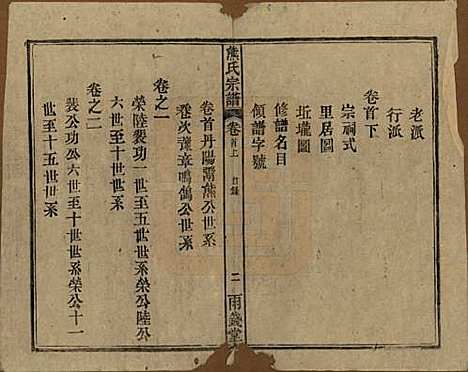 老派
行派
卷首下
宗祠式
里居圖
坵壠圖
修譜名目
領譜字號
熊氏宗譜
卷首上
目錄
二
兩錢堂
卷首丹陽鬻熊公世系
卷次豫章鳴鵠公世系
卷之一
榮陸裴功一世至五世世系榮公陸公
六世至十世世系
卷之二
裴公功公六世至十世世系榮公十一
世至十五世世系